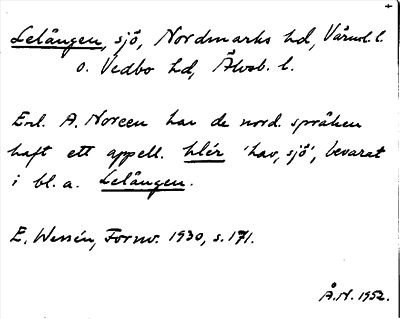 Lelången, sjö, Nordmarks hd, Värml. l.
o. Vedbo hd, Älvsb. l.
Enl. A. Noreen har de nord. språken
haft ett appell. hlér 'hav, sjö', bevarat
i bl. a. Lelången.
E. Wessén, Fornv. 1930, s. 171.
Å.N. 1952.